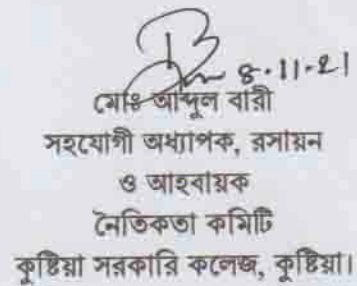 ৪.11.21
মোঃ আব্দুল বারী
সহযোগী অধ্যাপক, রসায়ন
ও আহবায়ক
নৈতিকতা কমিটি
কুষ্টিয়া সরকারি কলেজ, কুষ্টিয়া।